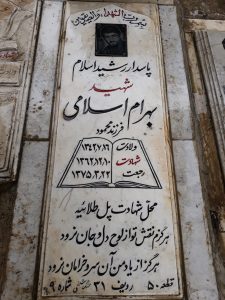 پاسدار رشید اسلام
شهید
بهرام اسلامی
فرزند محمود
ولادت ۱۳۴۲.۷.۱۶
شهادت ۱۳۶۲.۱۲.۱۰
رجعت ۱۳۷۵.۳.۲۲
محل شهادت پل طلائیه
هرگزم نقش تو از لوح دل و جان نرود
هرگز از یاد من آن سرو خرامان نرود
قطعه ۵۰ ردیف ۳۱ شماره ۹